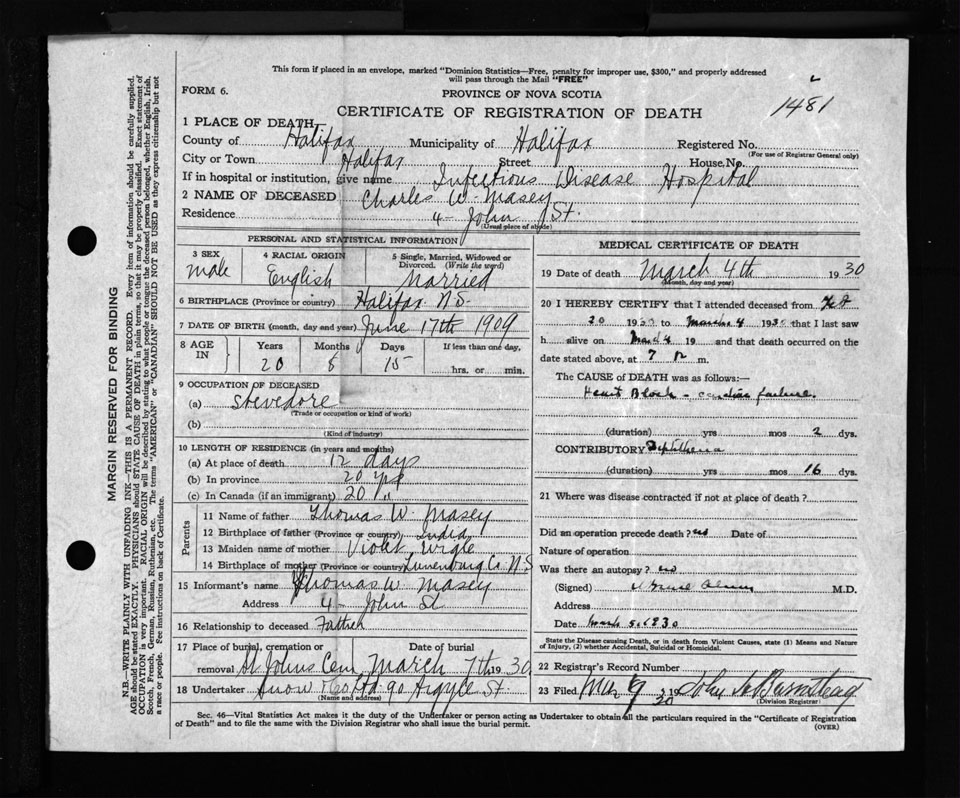 This form if placed in an envelope, marked "Dominion Statistics—Free, penalty for improper use, $300," and properly addressed
will pass through the Mail "FREE"
FORM 6.
PROVINCE OF NOVA SCOTIA
1481
CERTIFICATE OF REGISTRATION OF DEATH
1 PLACE OF DEATH—
County of Halifax Municipality of Halifax Registered No.
(For use of Registrar General only)
City or Town Halifax Street House No.
If in hospital or institution, give name Infectious Disease Hospital
2 NAME OF DECEASED Charles W. Masey
Residence 4 - John St.
(Usual place of abode)
PERSONAL AND STATISTICAL INFORMATION
3 SEX 4 RACIAL ORIGIN 5 Single, Married, Widowed or
Divorced. (Write the word)
male English Married
6 BIRTHPLACE (Province or country) Halifax N.S.
7 DATE OF BIRTH (month, day and year) June 17th 1909
8 AGE IN Years Months Days If less than one day,
20 8 15 hrs. or min.
9 OCCUPATION OF DECEASED
(a) Stevedore
(Trade or occupation or kind of work)
(b)
(Kind of industry)
10 LENGTH OF RESIDENCE (in years and months)
(a) At place of death 12 days
(b) In province 20 yrs
(c) In Canada (if an immigrant) 20 "
Parents
11 Name of father Thomas W. Masey
12 Birthplace of father (Province or country) India
13 Maiden name of mother Violet
14 Birthplace of mother (Province or country) Lunenburg Co. N.S
15 Informant's name Thomas W. Masey
Address 4 - John St
16 Relationship to deceased Father
17 Place of burial, cremation or Date of burial
removal St Johns Cem March 7th 1930
18 Undertaker Snow & Co Ltd 90 Argyle St.
(Name and address)
MEDICAL CERTIFICATE OF DEATH
19 Date of death March 4th 1930
(Month, day and year)
20 I HEREBY CERTIFY that I attended deceased from
20 1930 to March 4 1930 that I last saw
h alive on March 4 19 and that death occurred on the
date stated above, at 7 m.
The CAUSE of DEATH was as follows:—
Heart Block - cardiac failure.
(duration) yrs mos 2 dys.
CONTRIBUTORY Diphtheria
(duration) yrs mos 16 dys.
21 Where was disease contracted if not at place of death?
Did an operation precede death? no Date of
Nature of operation
Was there an autopsy? no
(Signed) M.D.
Address
Date March 5 1930
State the Disease causing Death, or in death from Violent Causes, state (1) Means and Nature
of Injury, (2) whether Accidental, Suicidal or Homicidal.
22 Registrar's Record Number
23 Filed Mar 9 1930 John
(Division Registrar)
Sec. 46—Vital Statistics Act makes it the duty of the Undertaker or person acting as Undertaker to obtain all the particulars required in the "Certificate of Registration
of Death" and to file the same with the Division Registrar who shall issue the burial permit.
(OVER)
MARGIN RESERVED FOR BINDING
N.B.—WRITE PLAINLY WITH UNFADING INK—THIS IS A PERMANENT RECORD. Every item of information should be carefully supplied.
AGE should be stated EXACTLY. PHYSICIANS should STATE CAUSE OF DEATH in plain terms, so that it may be properly classified. Exact statement of
OCCUPATION is very important. RACIAL ORIGIN will be described by stating to what people or tongue the deceased person belonged, whether English, Irish,
Scotch, French, German, Russian, Ruthenian, etc. The terms "AMERICAN" or "CANADIAN" SHOULD NOT BE USED as they express citizenship but not
a race or people. Fee instructions on back of Certificate.